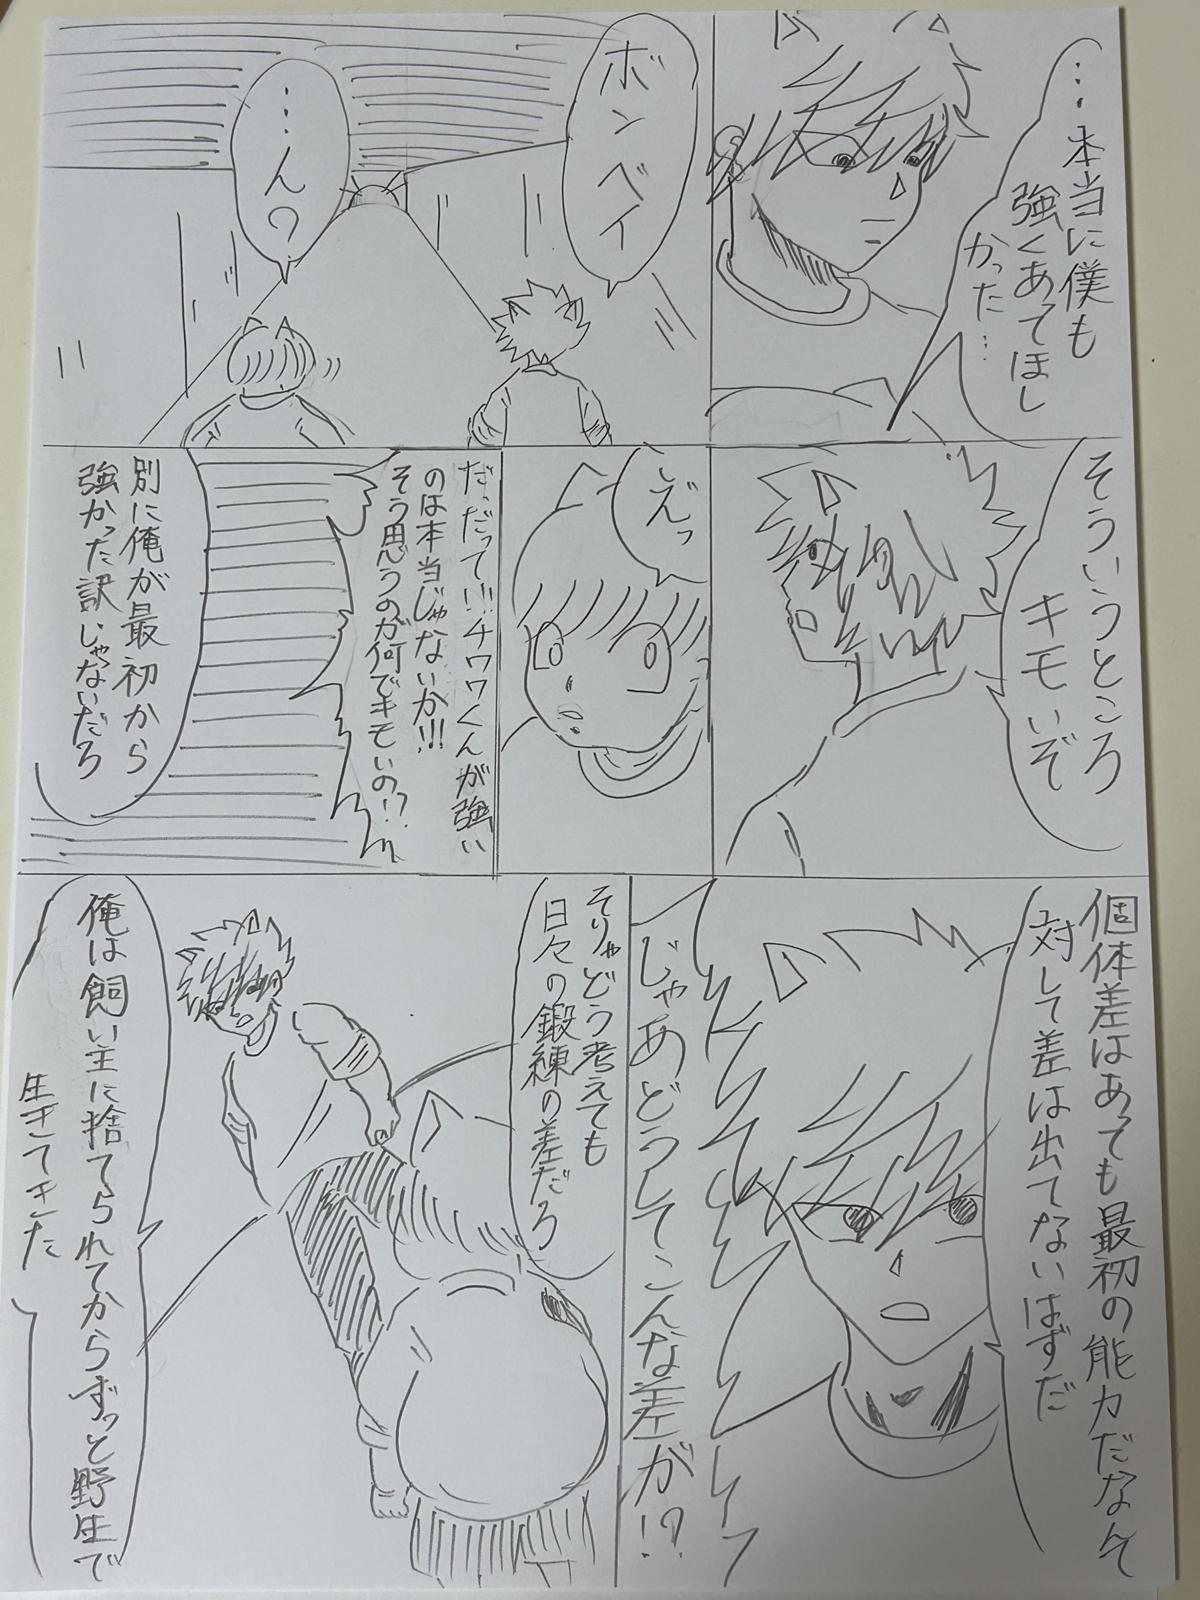 …本当に僕も
強くあてほし
かった…
ボンベイ
…ん?
そういうところ
キモいぞ
えっ
だっだって!!!チワワくんが強い
のは本当じゃないか!!!
そう思うのが何でキモいの!?
別に俺が最初から
強かった訳じゃないだろ
個体差はあても最初の能力だなんて
対して差は出てないはずだ
じゃあどうしてこんな差が!?
そりゃどう考えても
日々の鍛練の差だろ
俺は飼い主に捨てられてからずっと野生で
生きてきた